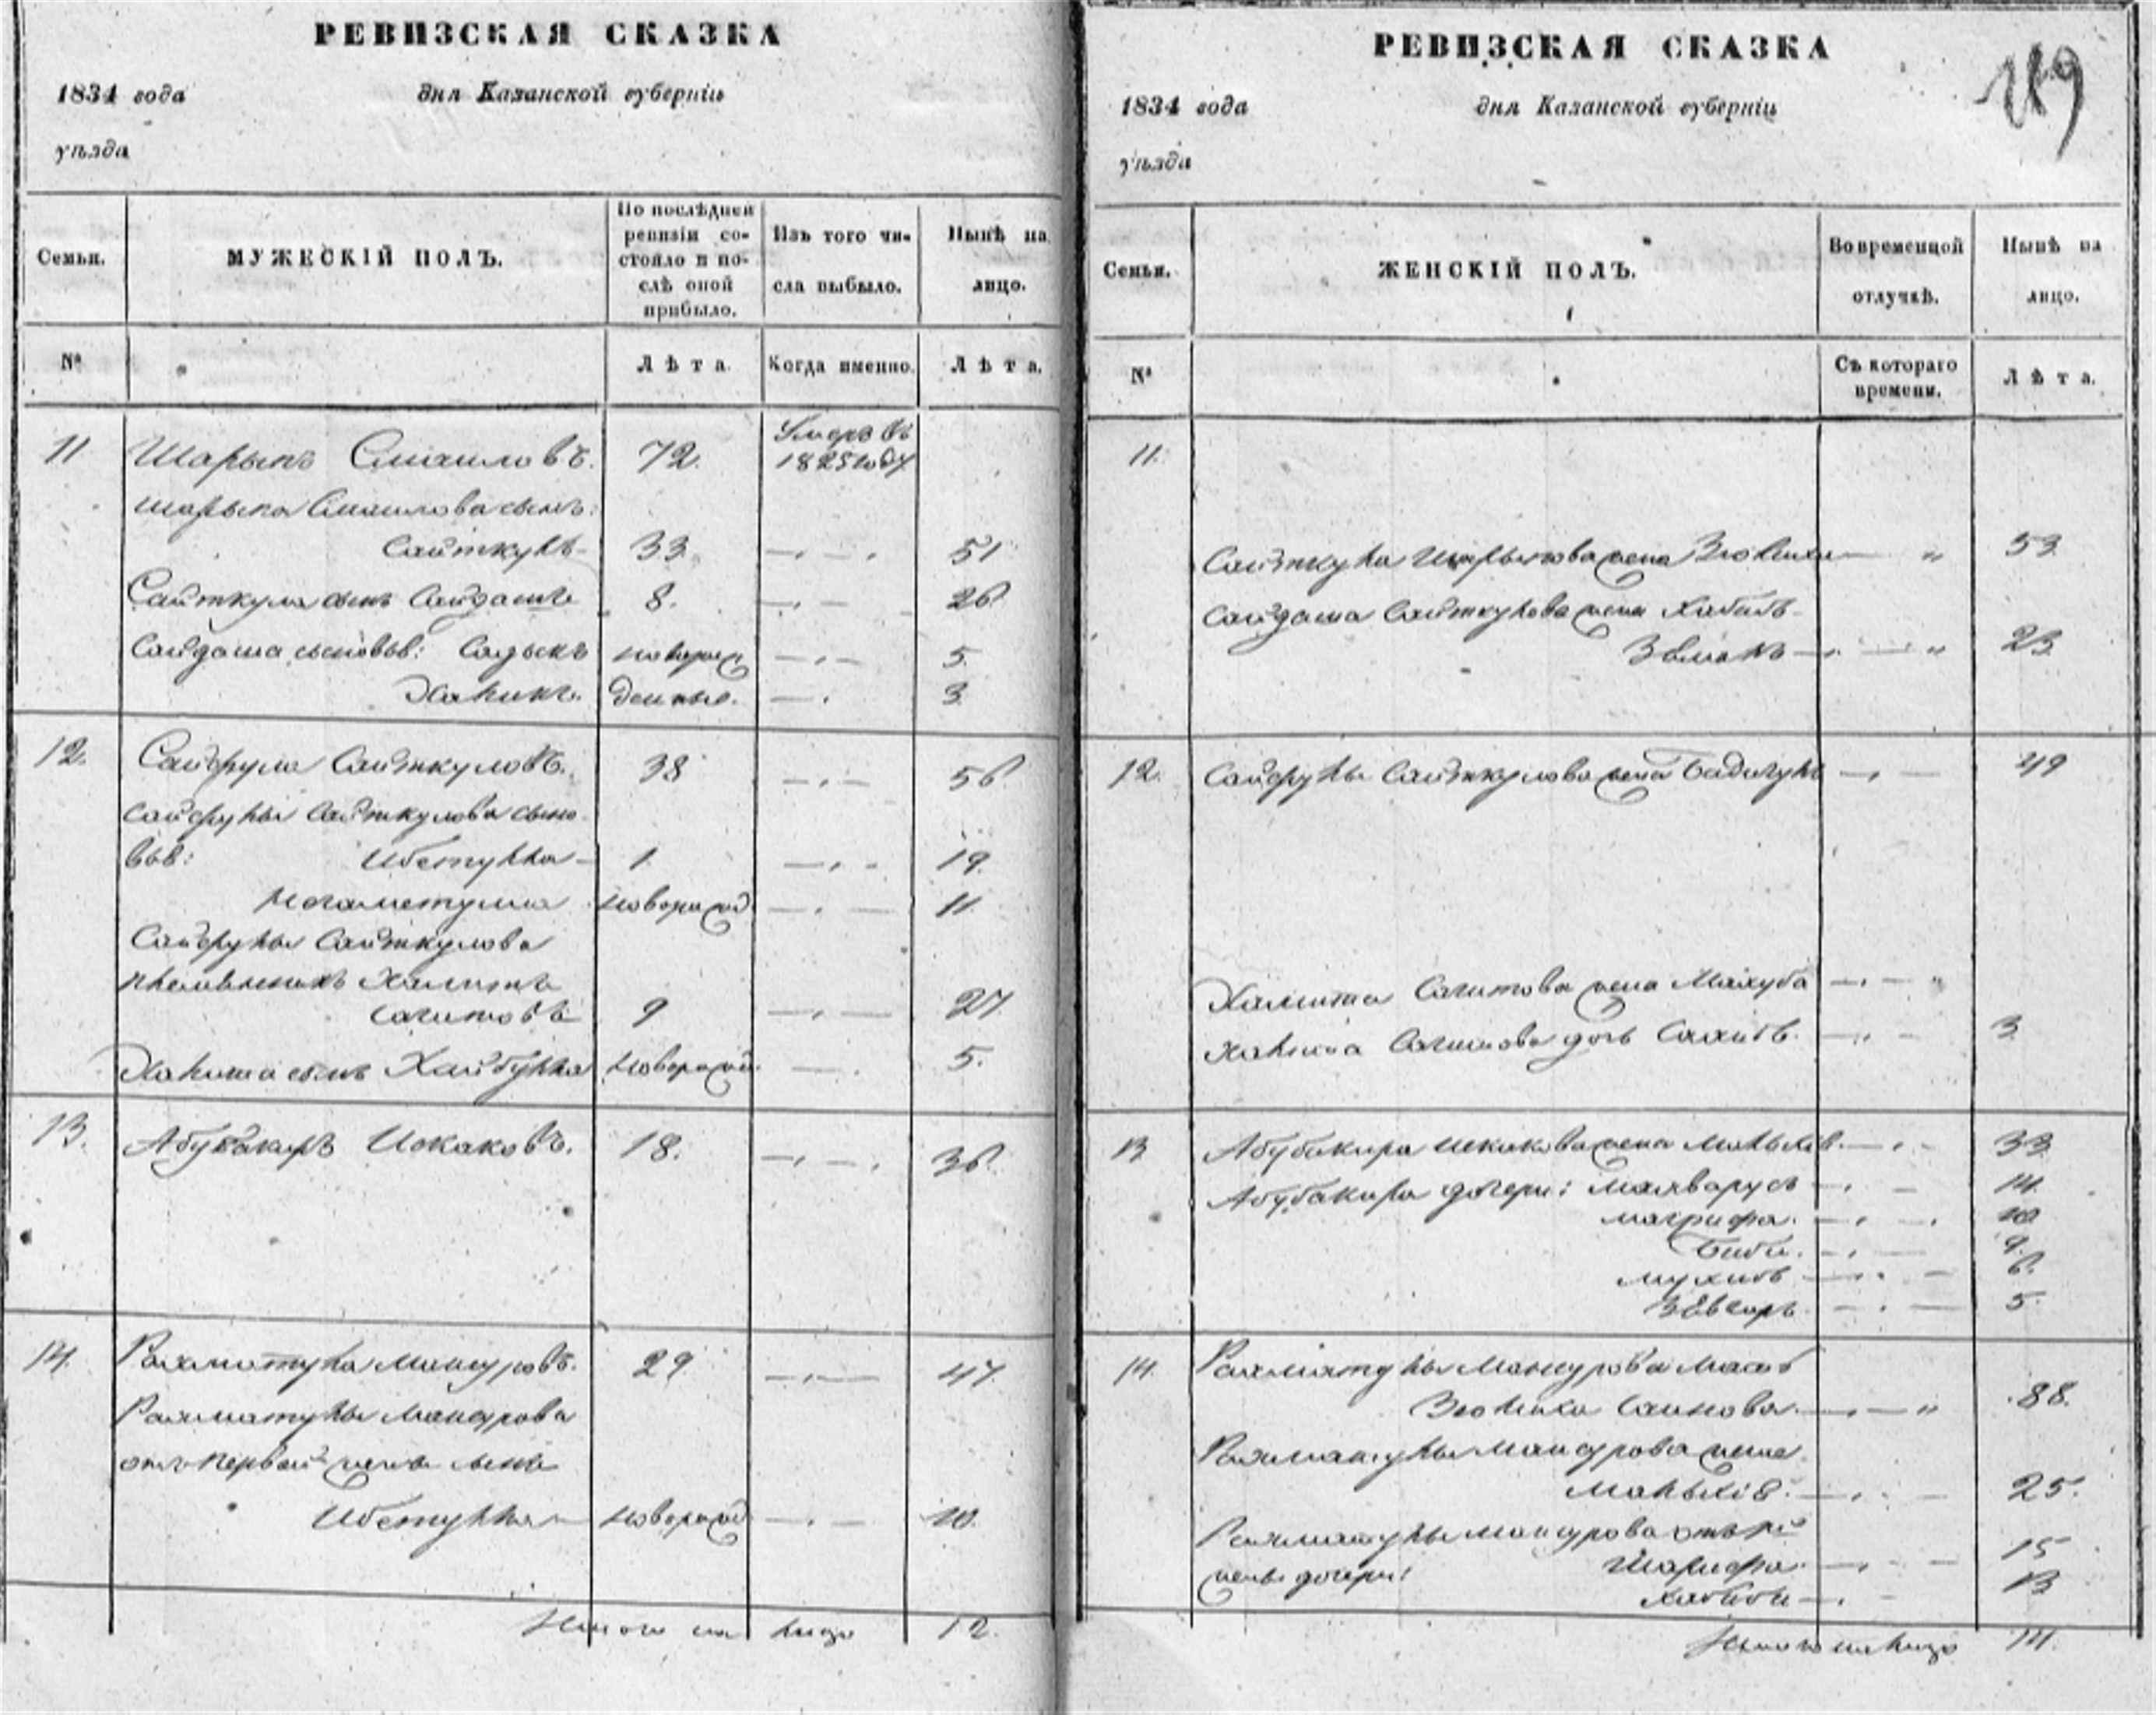 РЕВИЗСКАЯ СКАЗКА
1834 года дня Казанской губерніи
уѣзда
Семьи.
МУЖЕСКІЙ ПОЛЪ.
По послѣдней
ревизіи со-
стояло и по-
слѣ оной
прибыло.
Изъ того чи-
сла выбыло.
Нынѣ на
лицо.
№
Лѣта.
Когда именно.
Лѣта.
11 Шарыпъ Смаиловъ. 72. Умеръ въ
1825 году
Шарыпа Смаилова сынъ:
Саиткулъ 33. 51
Саиткула сынъ Сайдашъ 8. 26
Сайдаша сыновья: Садыкъ новорож 5.
денные. 3
12. Сайфула Саиткуловъ. 38 56
Сайфулы Саиткулова сыно
вья: 1. 19.
новорожд 11
Сайфулы Саиткулова
племянникъ Халитъ
Сагитовъ 9 27
Халита сынъ Хайбулла новорожд. 5.
13. Абубакиръ Искаковъ. 18. 36.
14. Рахматулла Мансуровъ. 29 47.
Рахматуллы Мансурова
отъ первой жены сынъ
новорожд 10.
Итого на лицо 12.
РЕВИЗСКАЯ СКАЗКА
1834 года дня Казанской губерніи
уѣзда
Семьи.
ЖЕНСКІЙ ПОЛЪ.
Во временной
отлучкѣ.
Нынѣ на
лицо.
№
Съ котораго
времени.
Лѣта.
11.
Саиткула Шарыпова жена Зюлиха 53
Сайдаша Саиткулова жена
23
12. Сайфулы Саиткулова жена 49
Халита Сагитова жена Махуба
Халита Сагитова дочь 3
13 Абубакира Искакова жена 33
Абубакира дочери: 14.
Магрифа. 10
Биби. 9.
6.
5.
14. Рахматуллы Мансурова мать
Зюлиха 88.
Рахматуллы Мансурова жена
25.
Рахматуллы Мансурова отъ 1й
жены дочери: Шарифа 15
Хабиби 13
Итого на лицо 14.